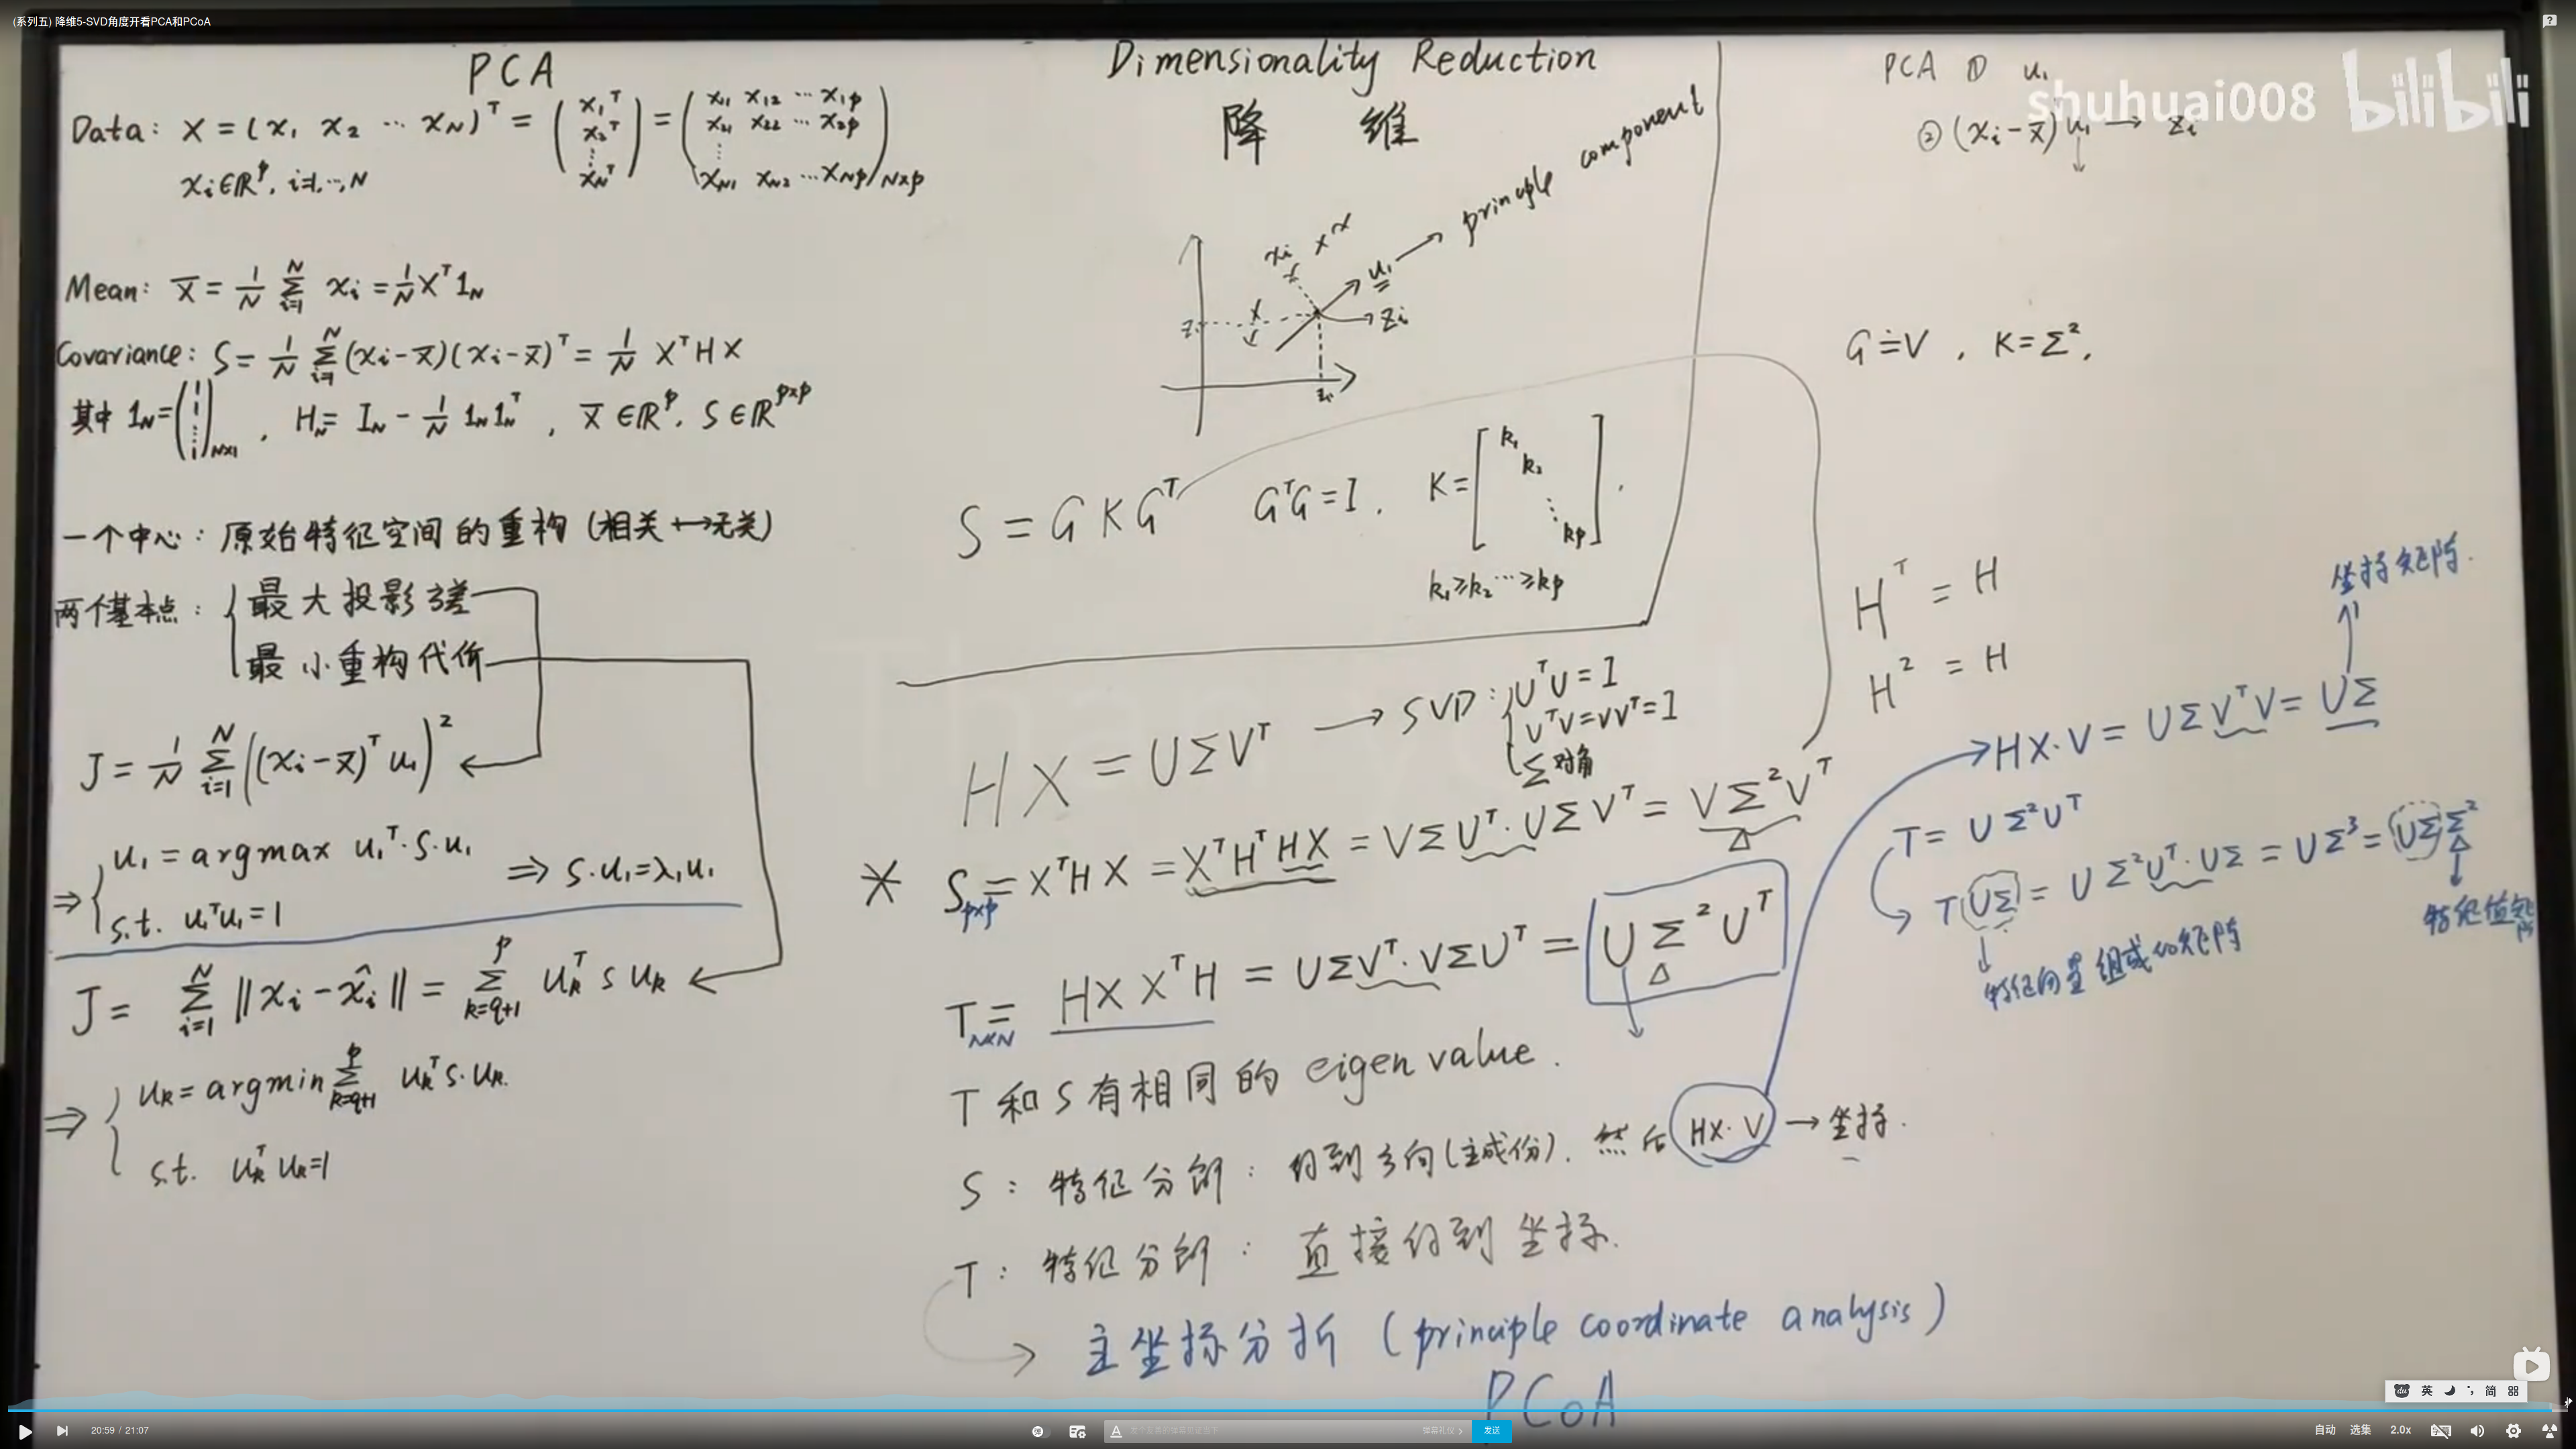 (系列五) 降维5-SVD角度开看PCA和PCoA
shuhuai008 bilibili
PCA
Data: X = (x₁ x₂ ⋯ x_N)^T = (x₁^T x₂^T ⋮ x_N^T) = (x₁₁ x₁₂ ⋯ x₁p
x₂₁ x₂₂ ⋯ x₂p
⋮
x_N1 x_N2 ⋯ x_Np)_N×p
x_i∈ℝ^p, i=1,⋯,N
Mean: X̄ = 1/N Σ_{i=1}^N x_i = 1/N X^T 1_N
Covariance: S = 1/N Σ_{i=1}^N (x_i-x̄)(x_i-x̄)^T = 1/N X^T H X
其中 1_N = (1 1 ⋮ 1)_N×1, H_N = I_N - 1/N 1_N 1_N^T, X̄ ∈ℝ^p, S∈ℝ^p×p
一个中心: 原始特征空间的重构 (相关↔无关)
两个基本点: { 最大投影方差
最小重构代价
J = 1/N Σ_{i=1}^N ((x_i-x̄)^T u₁)²
⇒ { u₁ = argmax u₁^T·S·u₁
s.t. u₁^T u₁=1
⇒ S·u₁=λ₁u₁
J = Σ_{i=1}^N ‖x_i-x̂_i‖ = Σ_{k=q+1}^p u_k^T S u_k
⇒ { u_k = argmin Σ_{k=q+1}^p u_k^T S·u_k
s.t. u_k^T u_k=1
Dimensionality Reduction
降 维
principle component
x_i
x x x
x
u₁
z_i
z_i
z_i
S = G K G^T G^T G = I, K = [k₁ k₂ ⋱ k_p].
k₁≥k₂⋯≥k_p
HX = UΣV^T → SVD: { U^T U = I
V^T V = V V^T = I
Σ 对角
* S_p×p = X^T H X = X^T H^T H X = VΣU^T·UΣV^T = VΣ²V^T
T_N×N = HXX^T H = UΣV^T·VΣU^T = UΣ²U^T
T 和 S 有相同的 eigen value.
S: 特征分解: 得到方向(主成份), 然后 HX·V → 坐标.
T: 特征分解: 直接得到坐标.
→ 主坐标分析 (principle coordinate analysis)
PCoA
PCA ① u₁
② (x_i-x̄) u₁ → z_i
G ≐ V, K = Σ²,
H^T = H
H² = H
坐标矩阵.
HX·V = UΣV^T V = UΣ
T = UΣ²U^T
T UΣ = UΣ²U^T·UΣ = UΣ³ = UΣ Σ²
特征向量组成的矩阵
特征值矩阵
英 简
20:59 / 21:07
弹幕礼仪 >
发送
自动 选集 2.0x